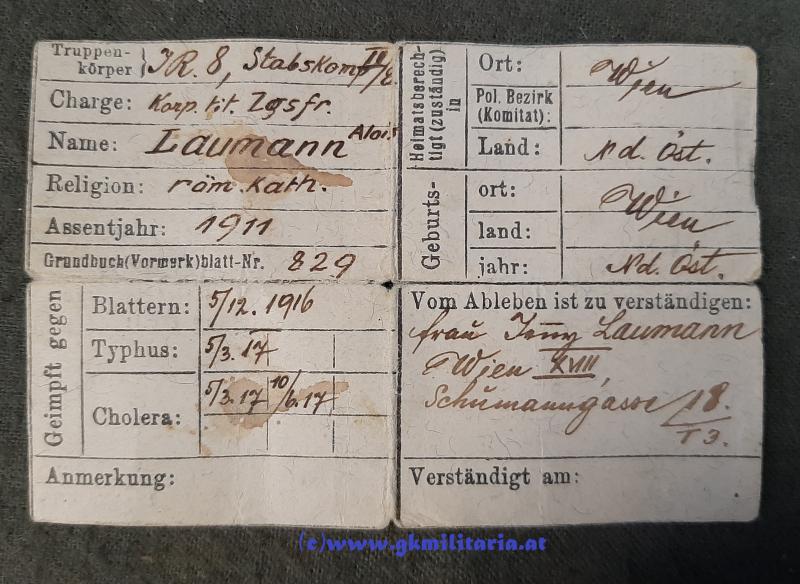 Truppen-
körper } IR. 8, Stabskomp II/8.
Charge: Korp. tit. Zgsfr.
Name: Laumann Alois
Religion: röm. kath.
Assentjahr: 1911
Grundbuch(Vormerk)blatt-Nr. 829
Heimatsberech-
tigt (zuständig)
in
Ort: Wien
Pol. Bezirk
(Komitat):
Land: Nd. Öst.
Geburts-
ort: Wien
land:
jahr: Nd. Öst.
Geimpft gegen
Blattern: 5/12. 1916
Typhus: 5/3. 17
Cholera: 5/3. 17 10/6. 17
Anmerkung:
Vom Ableben ist zu verständigen:
Frau Jenny Laumann
Wien XVIII,
Schumanngasse 18.
T 3.
Verständigt am:
(c)www.gkmilitaria.at